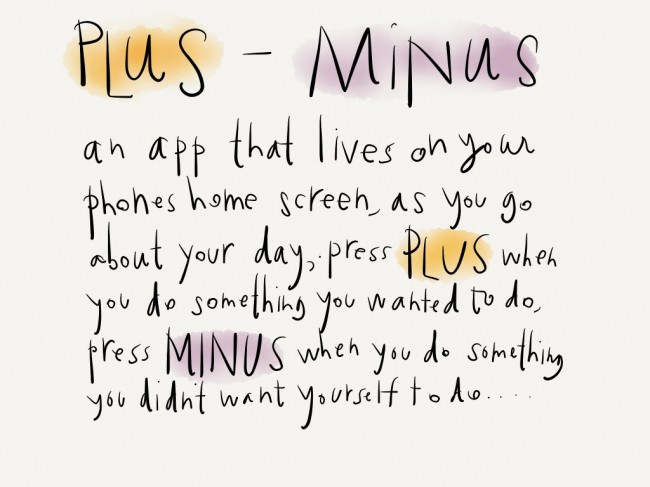 PLUS - MiNUS
an app that lives on your
phones home screen, as you go
about your day, press PLUS when
you do something you wanted to do,
press MINUS when you do something
you didn't want yourself to do....